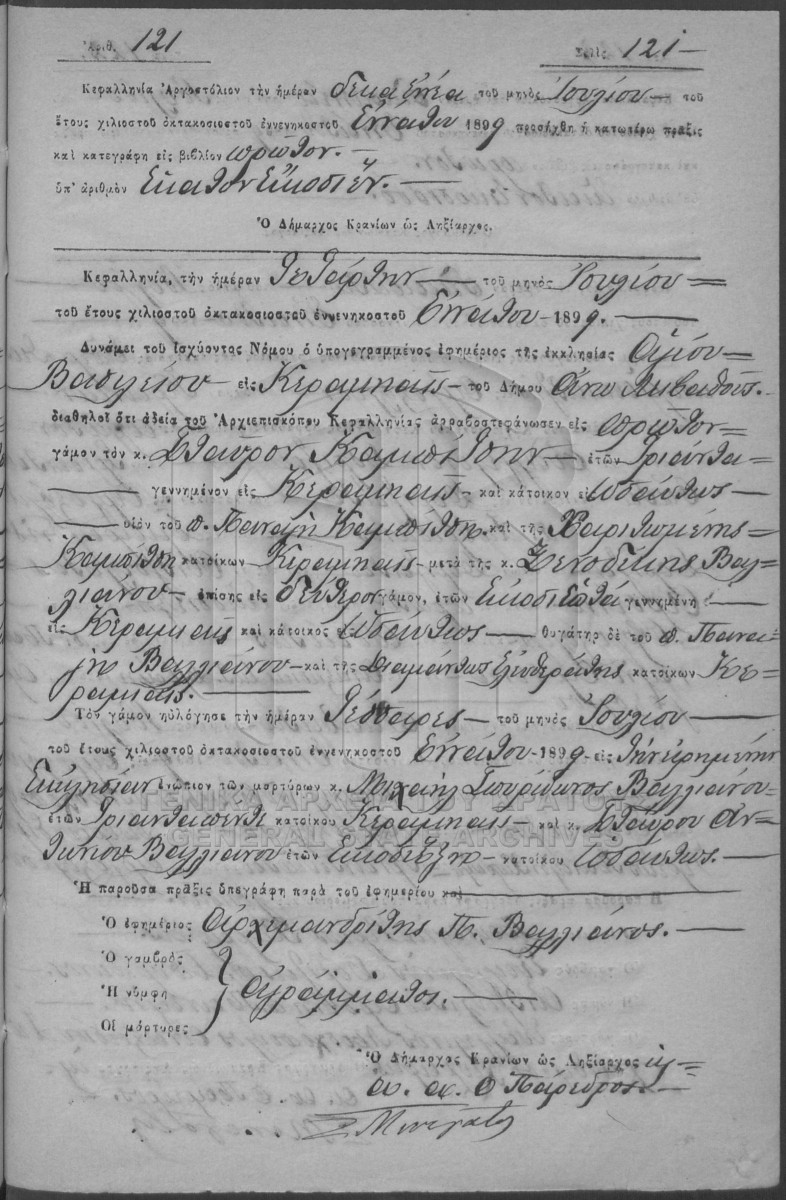 Ἀριθ. 121 Σελὶς 121
Κεφαλληνία Ἀργοστόλιον τὴν ἡμέραν δεκαεννέα τοῦ μηνὸς Ἰουλίου τοῦ
ἔτους χιλιοστοῦ ὀκτακοσιοστοῦ ἐννενηκοστοῦ Ἐννάτου 1899 προσήχθη ἡ κατωτέρω πρᾶξις
καὶ κατεγράφη εἰς βιβλίον πρῶτον.
ὑπ' ἀριθμὸν Ἑκατὸν Εἴκοσι ἕν.
Ὁ Δήμαρχος Κρανίων ὡς Ληξίαρχος.
Κεφαλληνία, τὴν ἡμέραν Τετάρτην τοῦ μηνὸς Ἰουλίου
τοῦ ἔτους χιλιοστοῦ ὀκτακοσιοστοῦ ἐννενηκοστοῦ Ἐννάτου 1899.
Δυνάμει τοῦ ἰσχύοντος Νόμου ὁ ὑπογεγραμμένος ἐφημέριος τῆς ἐκκλησίας Ἁγίου
Βασιλείου εἰς Κεραμειαῖς τοῦ Δήμου Ἄνω Λειβαθοῦς.
διαθηλοῖ ὅτι ἀδεία τοῦ Ἀρχιεπισκόπου Κεφαλληνίας ἀρραβοστεφάνωσεν εἰς πρῶτον
γάμον τὸν κ. Σταῦρον Καμπίτσην ἐτῶν Τριάντα
γεννημένον εἰς Κεραμειαῖς καὶ κάτοικον εἰς ὡσαύτως
υἱὸν τοῦ π. Παναγῆ Καμπίτση. καὶ τῆς Χαριτωμένης
Καμπίτση κατοίκων Κεραμειαῖς μετὰ τῆς κ. Ξενοδίκης Βαλ-
λιάνου ἐπίσης εἰς δεύτερον γάμον, ἐτῶν Εἰκοσιεπτά γεννημένη
εἰς Κεραμειαῖς καὶ κάτοικος ὡσαύτως θυγάτηρ δὲ τοῦ π. Πανα-
γῆ Βαλλιάνου καὶ τῆς Διαμάντως Ἐλευθεράτης κατοίκων Κε-
ραμειαῖς.
Τὸν γάμον ηὐλόγησε τὴν ἡμέραν Τέσσαρες τοῦ μηνὸς Ἰουλίου
τοῦ ἔτους χιλιοστοῦ ὀκτακοσιοστοῦ ἐννενηκοστοῦ Ἐννάτου 1899 εἰς τὴν εἰρημένην
Ἐκκλησίαν ἐνώπιον τῶν μαρτύρων κ. Μιχαὴλ Σπυρίδωνος Βαλλιάνου
ἐτῶν Τριάντα πέντε κατοίκου Κεραμειαῖς καὶ κ. Σταύρου Ἀν-
τωνίου Βαλλιάνου ἐτῶν Εἰκοσιέξη κατοίκου ὡσαύτως.
ΓΕΝΙΚΑ ΑΡΧΕΙΑ ΤΟΥ ΚΡΑΤΟΥΣ
GENERAL STATE ARCHIVES
Ἡ παροῦσα πρᾶξις ὑπεγράφη παρὰ τοῦ ἐφημερίου καὶ
Ὁ ἐφημέριος Ἀρχιμανδρίτης Π. Βαλλιάνος.
Ὁ γαμβρὸς
Ἡ νύμφη ἀγράμματοι.
Οἱ μάρτυρες
Ὁ Δήμαρχος Κρανίων ὡς Ληξίαρχος
Ὁ Πάρεδρος.